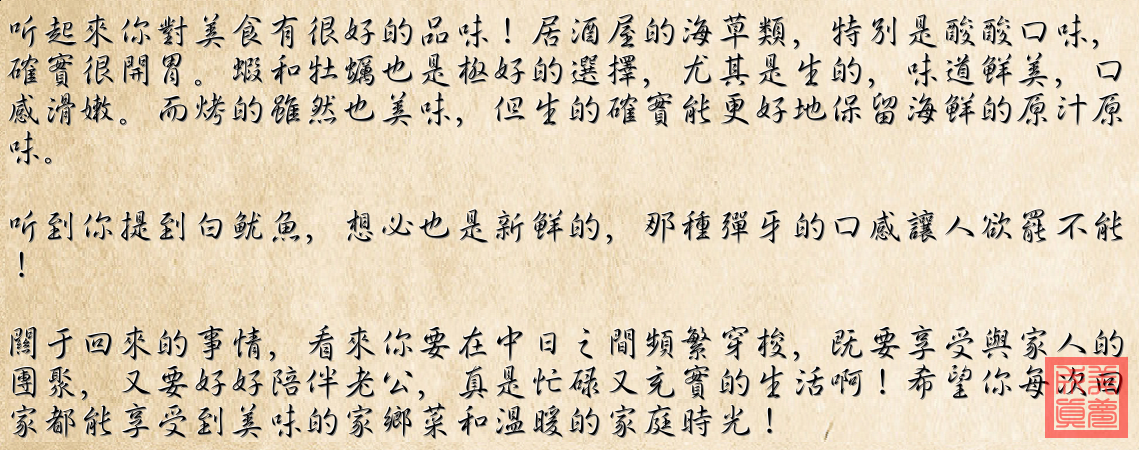 听起來你對美食有很好的品味！居酒屋的海草類，特別是酸酸口味，
確實很開胃。蝦和牡蠣也是極好的選擇，尤其是生的，味道鮮美，口
感滑嫩。而烤的雖然也美味，但生的確實能更好地保留海鮮的原汁原
味。
听到你提到白鱿魚，想必也是新鮮的，那種彈牙的口感讓人欲罷不能
！
關于回來的事情，看來你要在中日之間頻繁穿梭，既要享受與家人的
團聚，又要好好陪伴老公，真是忙碌又充實的生活啊！希望你每次回
家都能享受到美味的家鄉菜和溫暖的家庭時光！